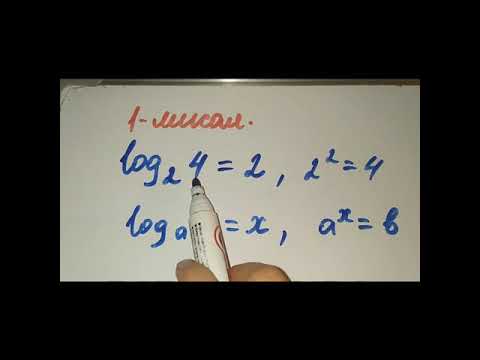 1-мисал.
log₂ 4 = 2, 2² = 4
logₐ = x, aˣ = b